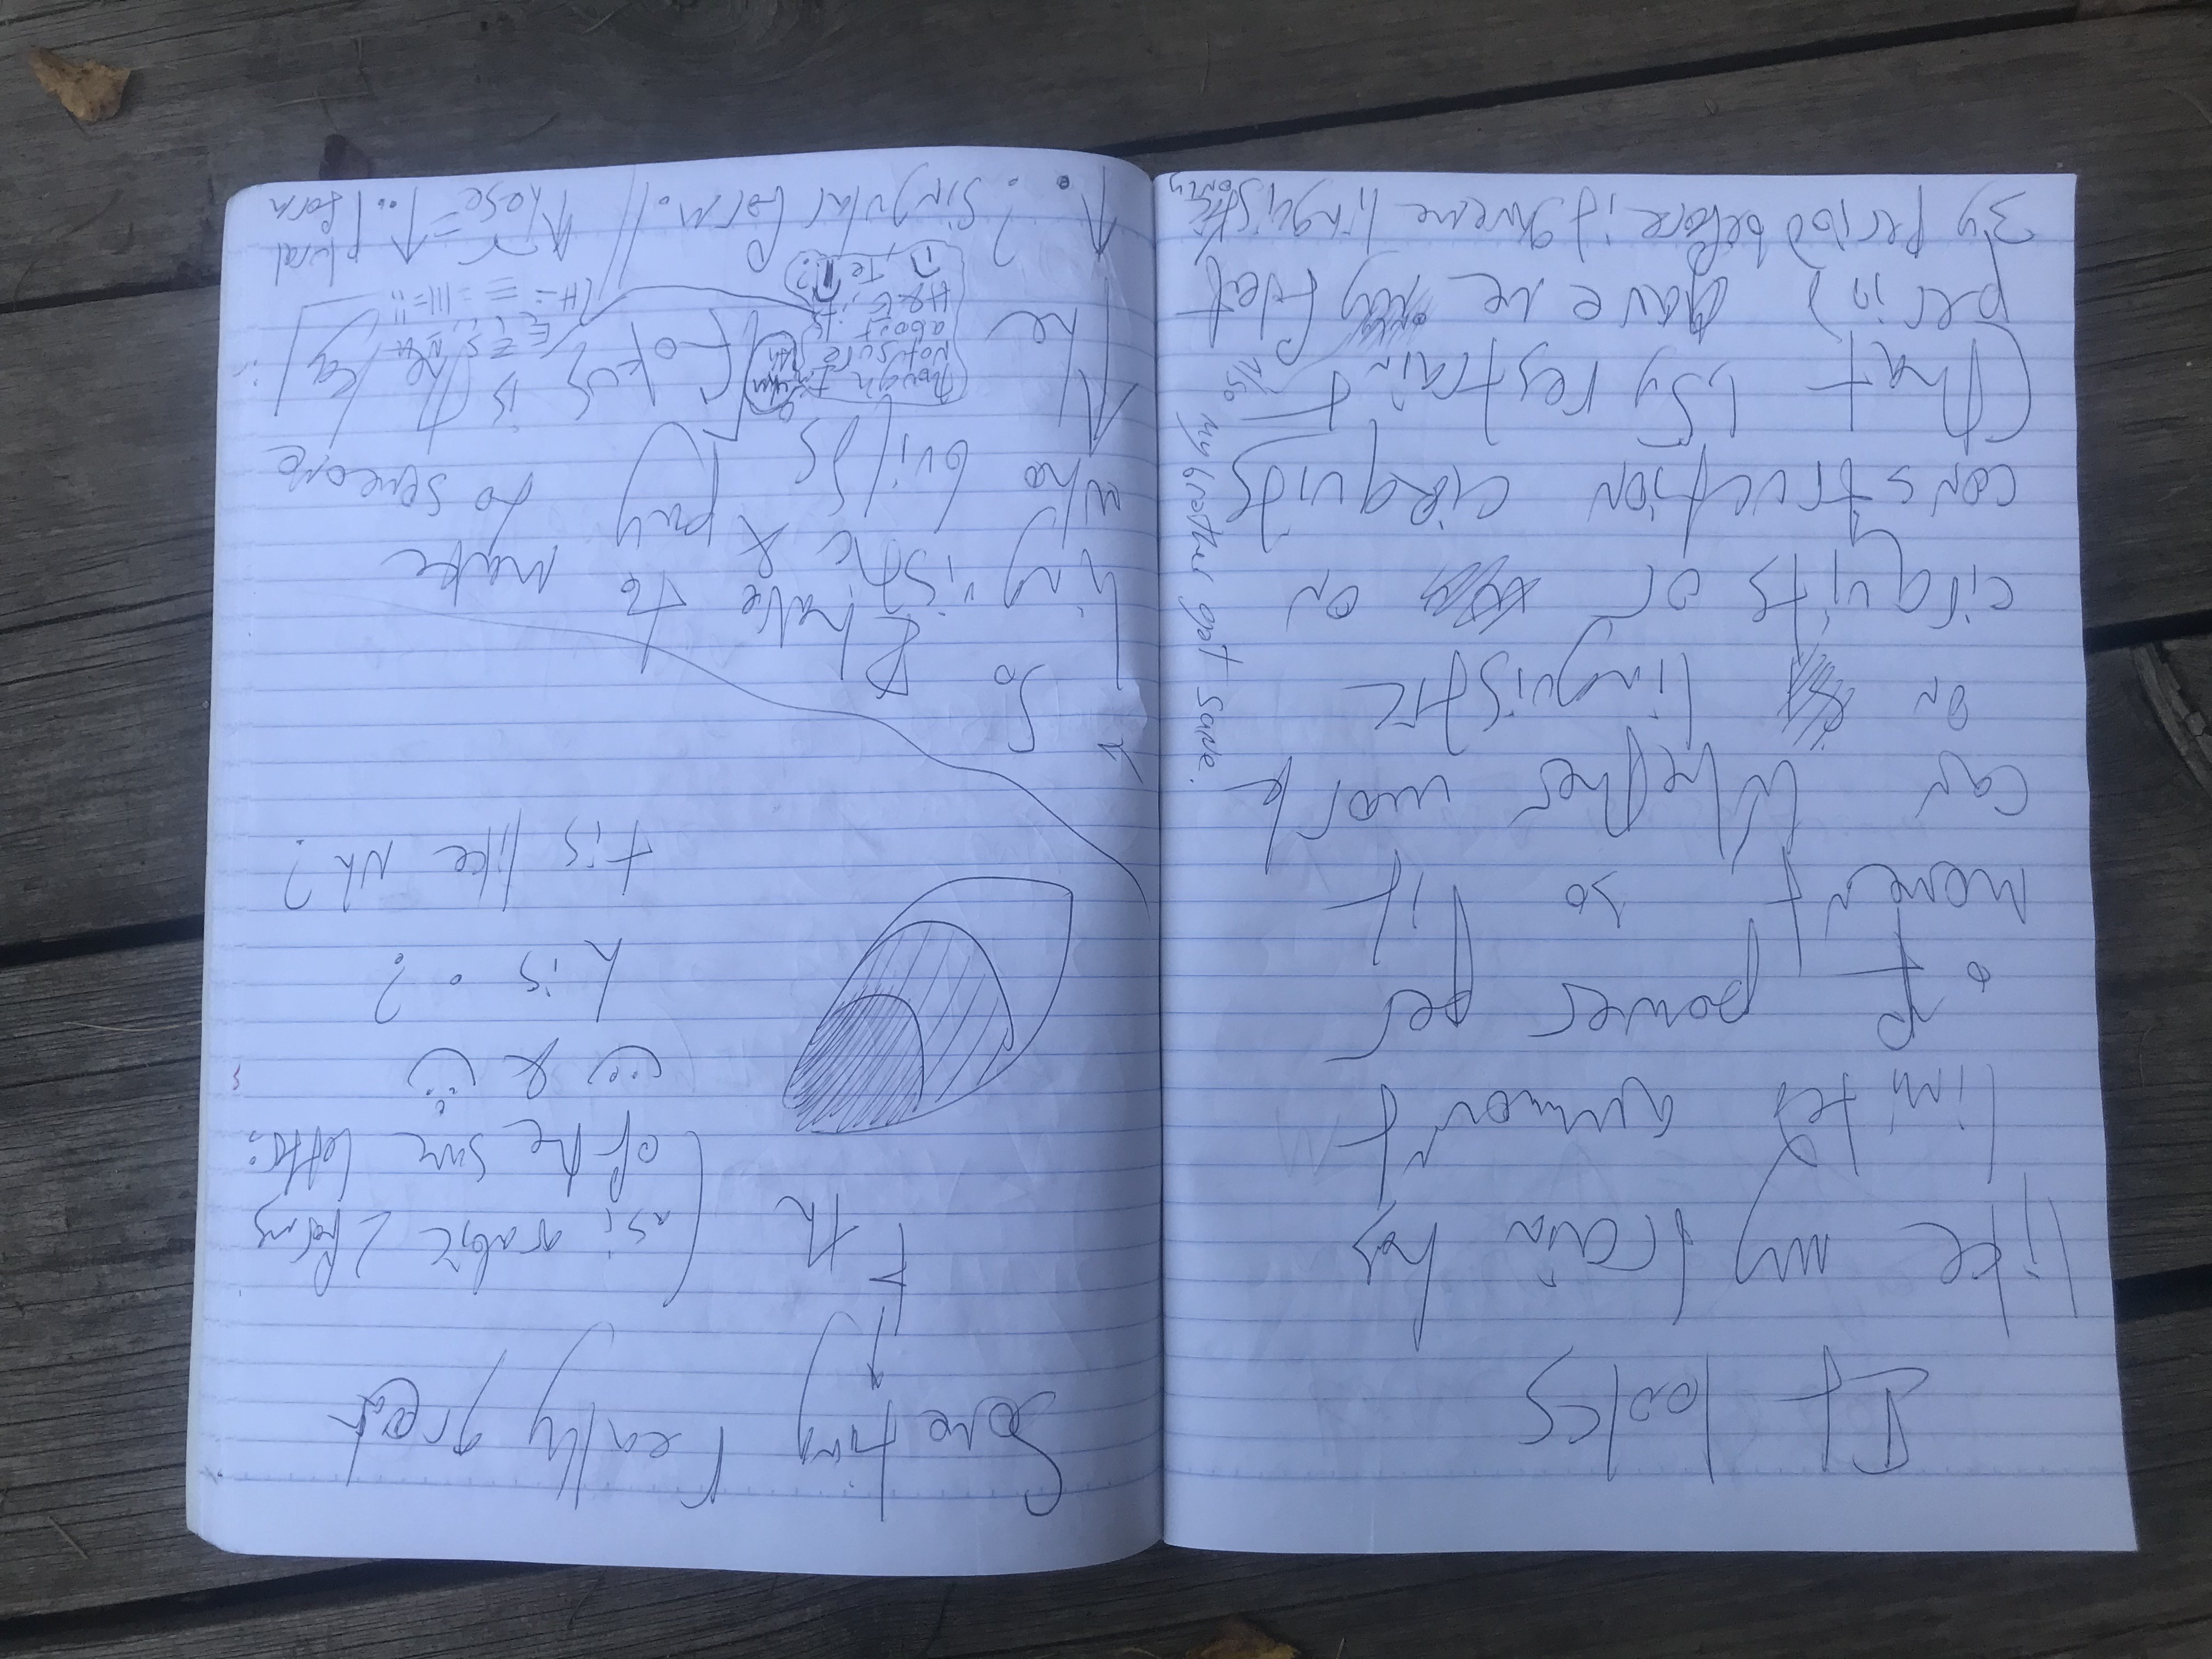 It looks
like my train has
limited ammount
of power per
moment so it
can whether work
on linguistic
cirquits or on
construction cirquits
(that 1,5y restraint
period) gave me
3y period before, it gave me linguistic
only
Also my brother got same.
Someting really great
th
(as i arabic 2 forms
of the same letter:
&
h is · ?
t is like Nh?
So
I have to make
linguistic & pay to someone
who builds
The
Though I'm
not sure
about
H & E, its
, Te ?
fokus is the key
↑. ? singular form. //
↑ These = ↑.. plural
form